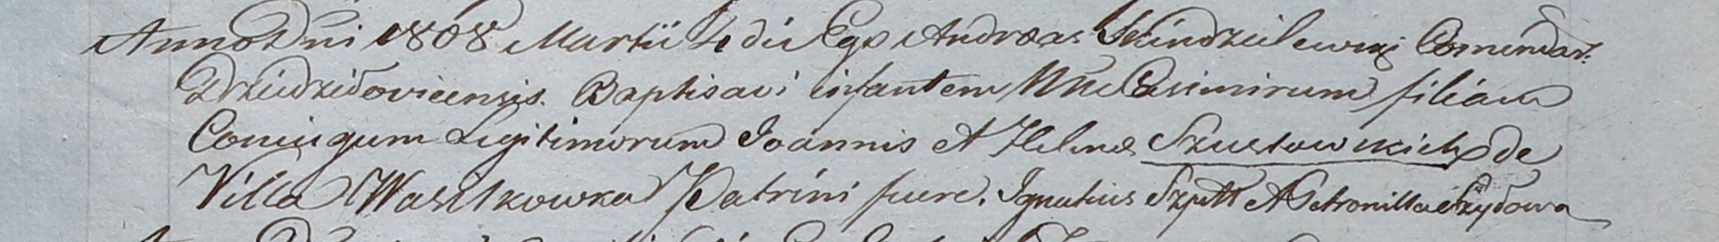 Anno Dni 1808 Martii 4 di Ego Andreas Skindzielewski Comendar.
Dziedziłovicensis. Baptisavi infantem Nne Casimirum filiam
Coniugum Legitimorum Joannis et Helena Szustowskich de
Villa Wasilkowka Patrini fuere. Ignatius Szpitt et Petronilla Szyłowa